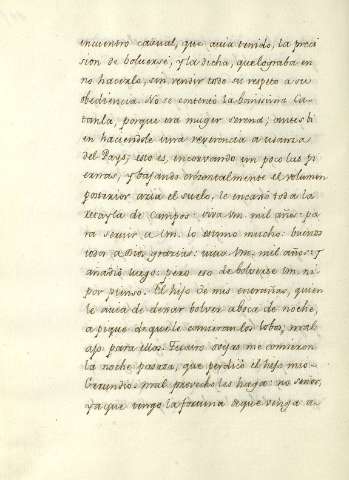 encuentro casual, que avia tenido, la preci
sion de bolverse, y la dicha, que lograba en
no hacerlo, sin rendir todo su respeto a su
obediencia. No se contentó la bonisima Ca-
tanla, porque era muger serena; antes bi
en haciendole una reverencia a usanza
del Pays, esto es, encorvando un poco las pi
ernas, y bajando orizontalmente el volumen
posterior azia el suelo, le encajó toda la
retayla de Campos: viva Vm. mil años: pa
ra servir a Vm. lo estimo mucho: buenos
todos a Dios grazias: viva Vm. mil años: Y
añadió luego: pero eso de bolverse Vm. ni
por pienso. El hijo de mis entrañas, quien
le avia de dexar bolver a boca de noche,
a pique de que le comieran los lobos, mal
año para ellos. Quatro ovejas me comieron
la noche pasada, que perdió el hijo mio
Gerundio: mal provecho les haga: no señor,
ya que tengo la fortuna de que venga a-